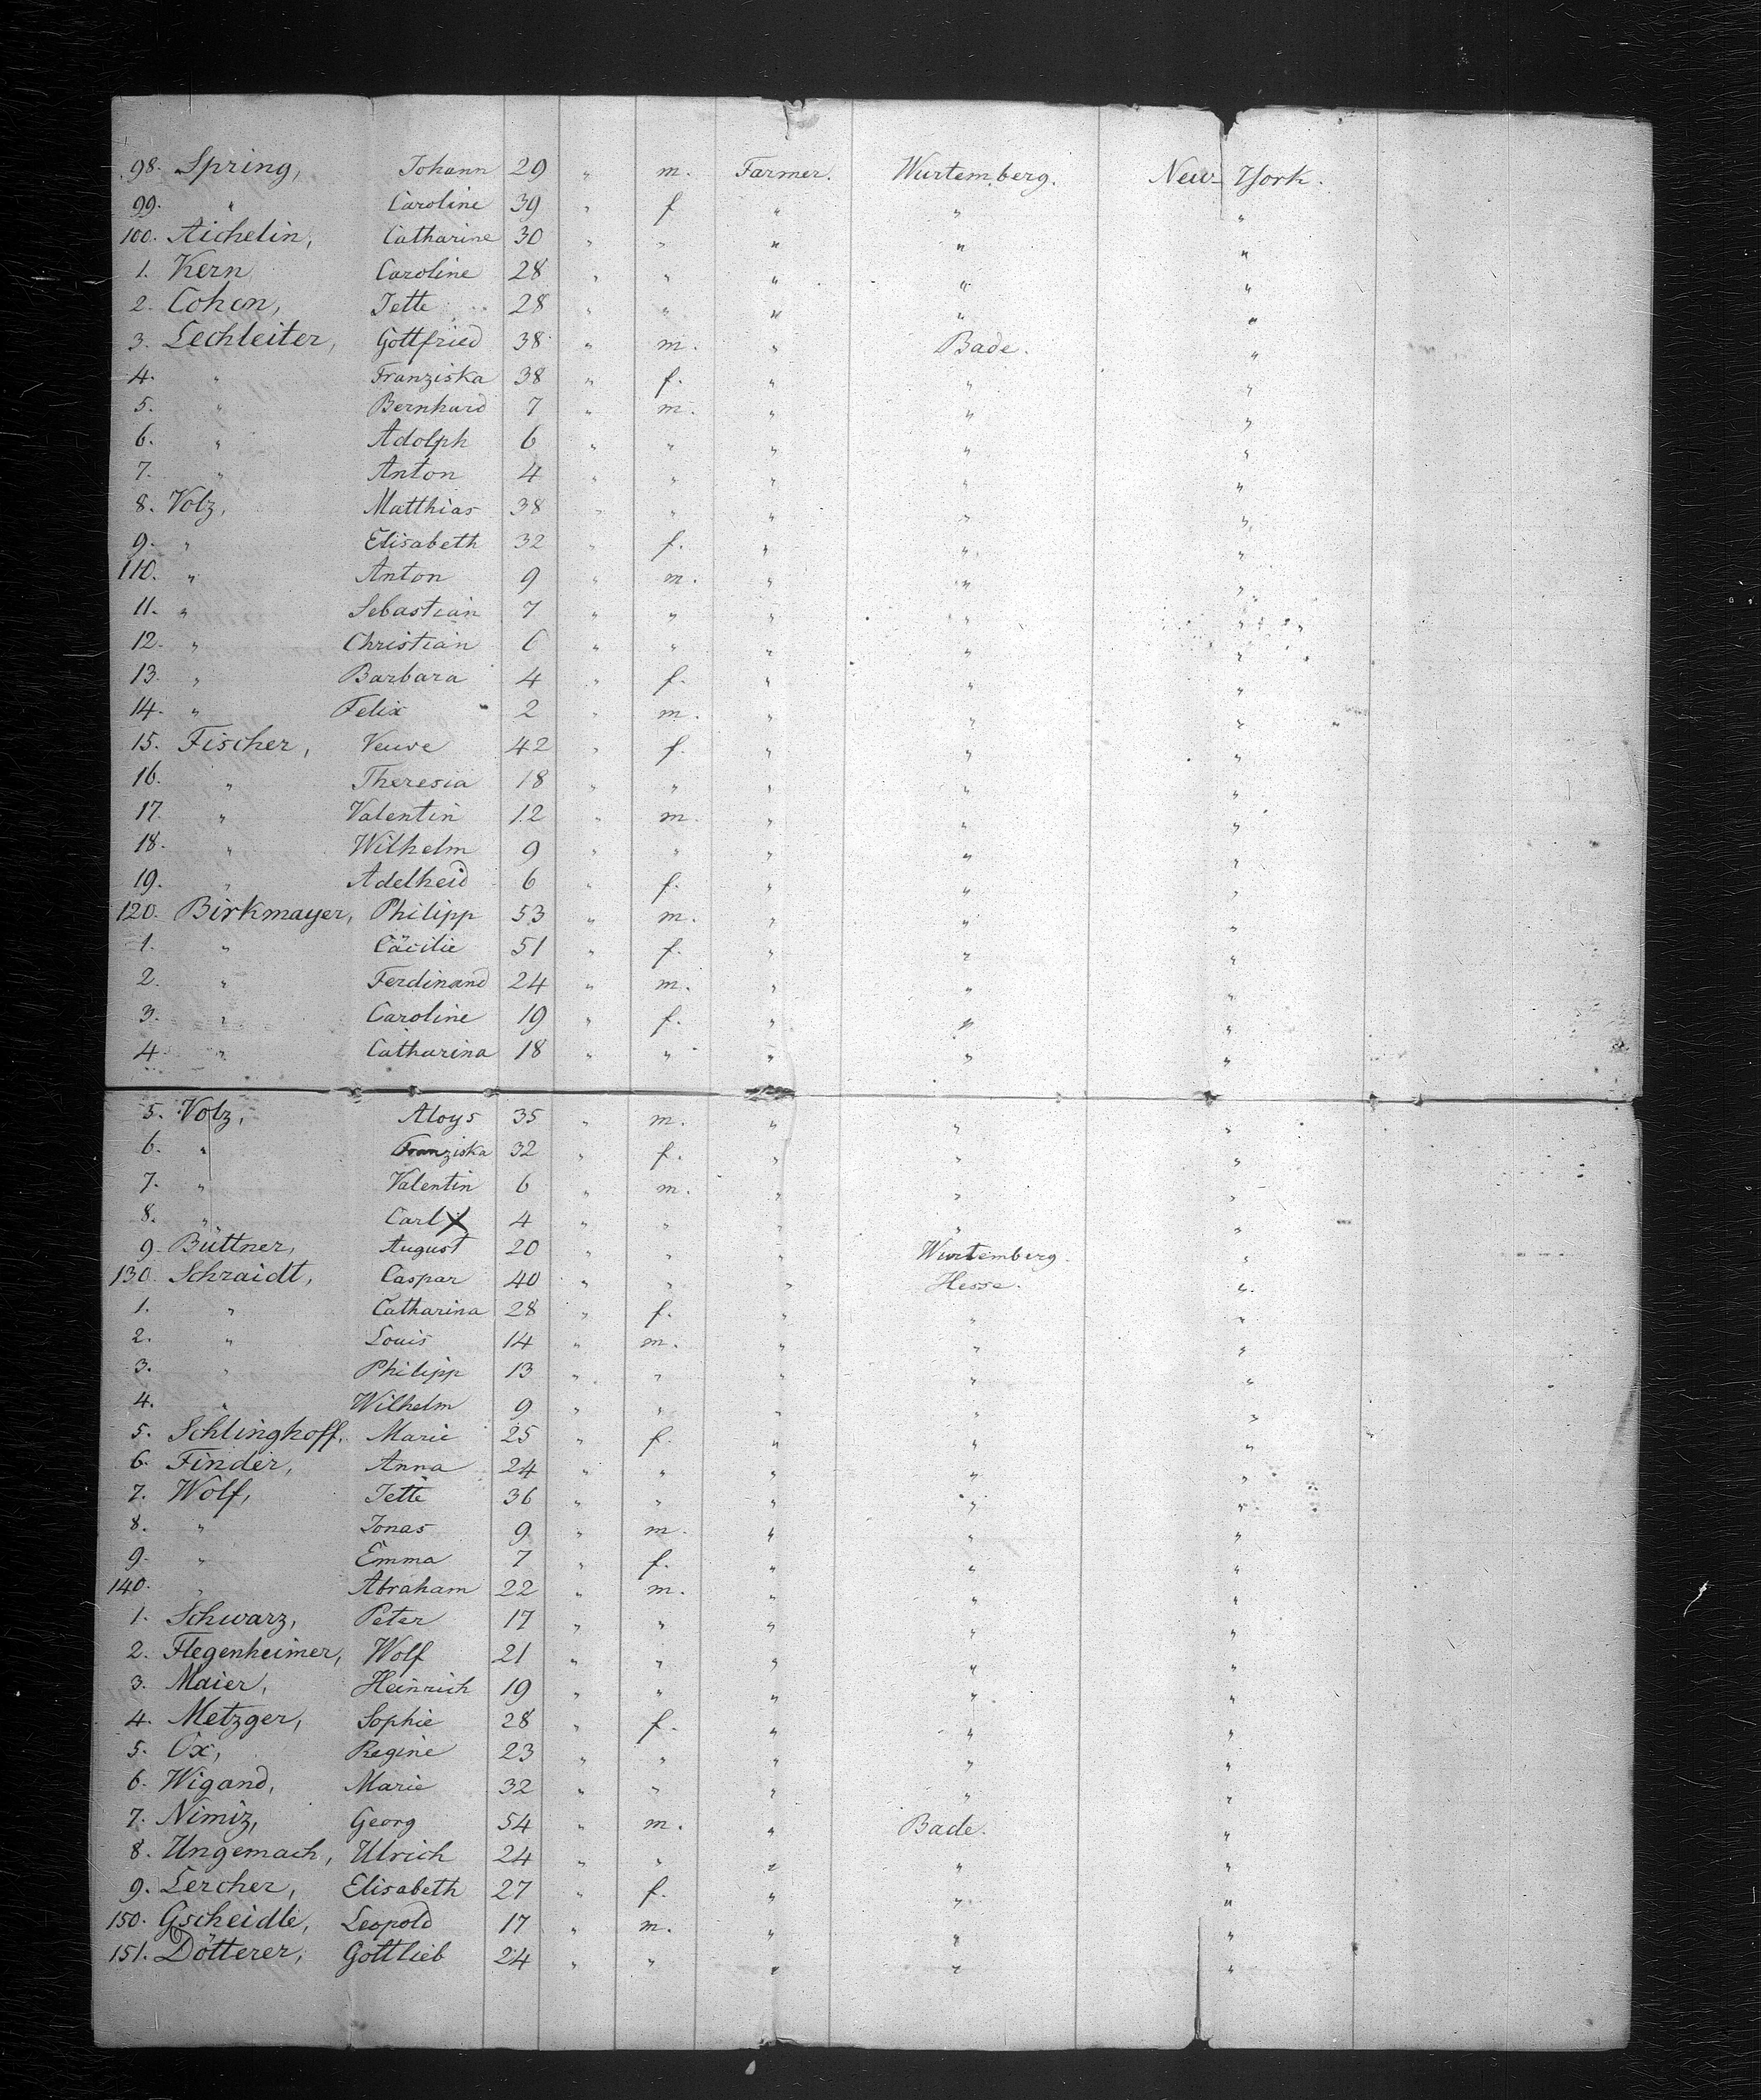 98. Spring, Johann 29 " m. Farmer. Wurtemberg. New-York.
99. " Caroline 39 " f " " "
100. Aichelin, Catharine 30 " " " " "
1. Kern Caroline 28 " " " " "
2. Cohen, Jette 28 " " " " "
3. Lechleiter, Gottfried 38 " m. " Bade. "
4. " Franziska 38 " f. " " "
5. " Bernhard 7 " m. " " "
6. " Adolph 6 " " " " "
7. " Anton 4 " " " " "
8. Volz, Matthias 38 " " " " "
9. " Elisabeth 32 " f. " " "
110. " Anton 9 " m. " " "
11. " Sebastian 7 " " " " "
12. " Christian 6 " " " " "
13. " Barbara 4 " f. " " "
14. " Felix 2 " m. " " "
15. Fischer, Veuve 42 " f. " " "
16. " Theresia 18 " " " " "
17. " Valentin 12 " m. " " "
18. " Wilhelm 9 " " " " "
19. " Adelheid 6 " f. " " "
120. Birkmayer, Philipp 53 " m. " " "
1. " Cäcilie 51 " f. " " "
2. " Ferdinand 24 " m. " " "
3. " Caroline 19 " f. " " "
4. " Catharina 18 " " " " "
5. Volz, Aloys 35 " m. " " "
6. " Franziska 32 " f. " " "
7. " Valentin 6 " m. " " "
8. " Carl X 4 " " " " "
9. Büttner, August 20 " " " Wurtemberg. "
130. Schraidt, Caspar 40 " " " Hesse. "
1. " Catharina 28 " f. " " "
2. " Louis 14 " m. " " "
3. " Philipp 13 " " " " "
4. " Wilhelm 9 " " " " "
5. Schlinghoff, Marie 25 " f. " " "
6. Finder, Anna 24 " " " " "
7. Wolf, Jette 36 " " " " "
8. " Jonas 9 " m. " " "
9. " Emma 7 " f. " " "
140. " Abraham 22 " m. " " "
1. Schwarz, Peter 17 " " " " "
2. Flegenheimer, Wolf 21 " " " " "
3. Maier, Heinrich 19 " " " " "
4. Metzger, Sophie 28 " f. " " "
5. Ox, Regine 23 " " " " "
6. Wigand, Marie 32 " " " " "
7. Nimiz, Georg 54 " m. " Bade. "
8. Ungemach, Ulrich 24 " " " " "
9. Lercher, Elisabeth 27 " f. " " "
150. Gscheidle, Leopold 17 " m. " " "
151. Dötterer, Gottlieb 24 " " " " "